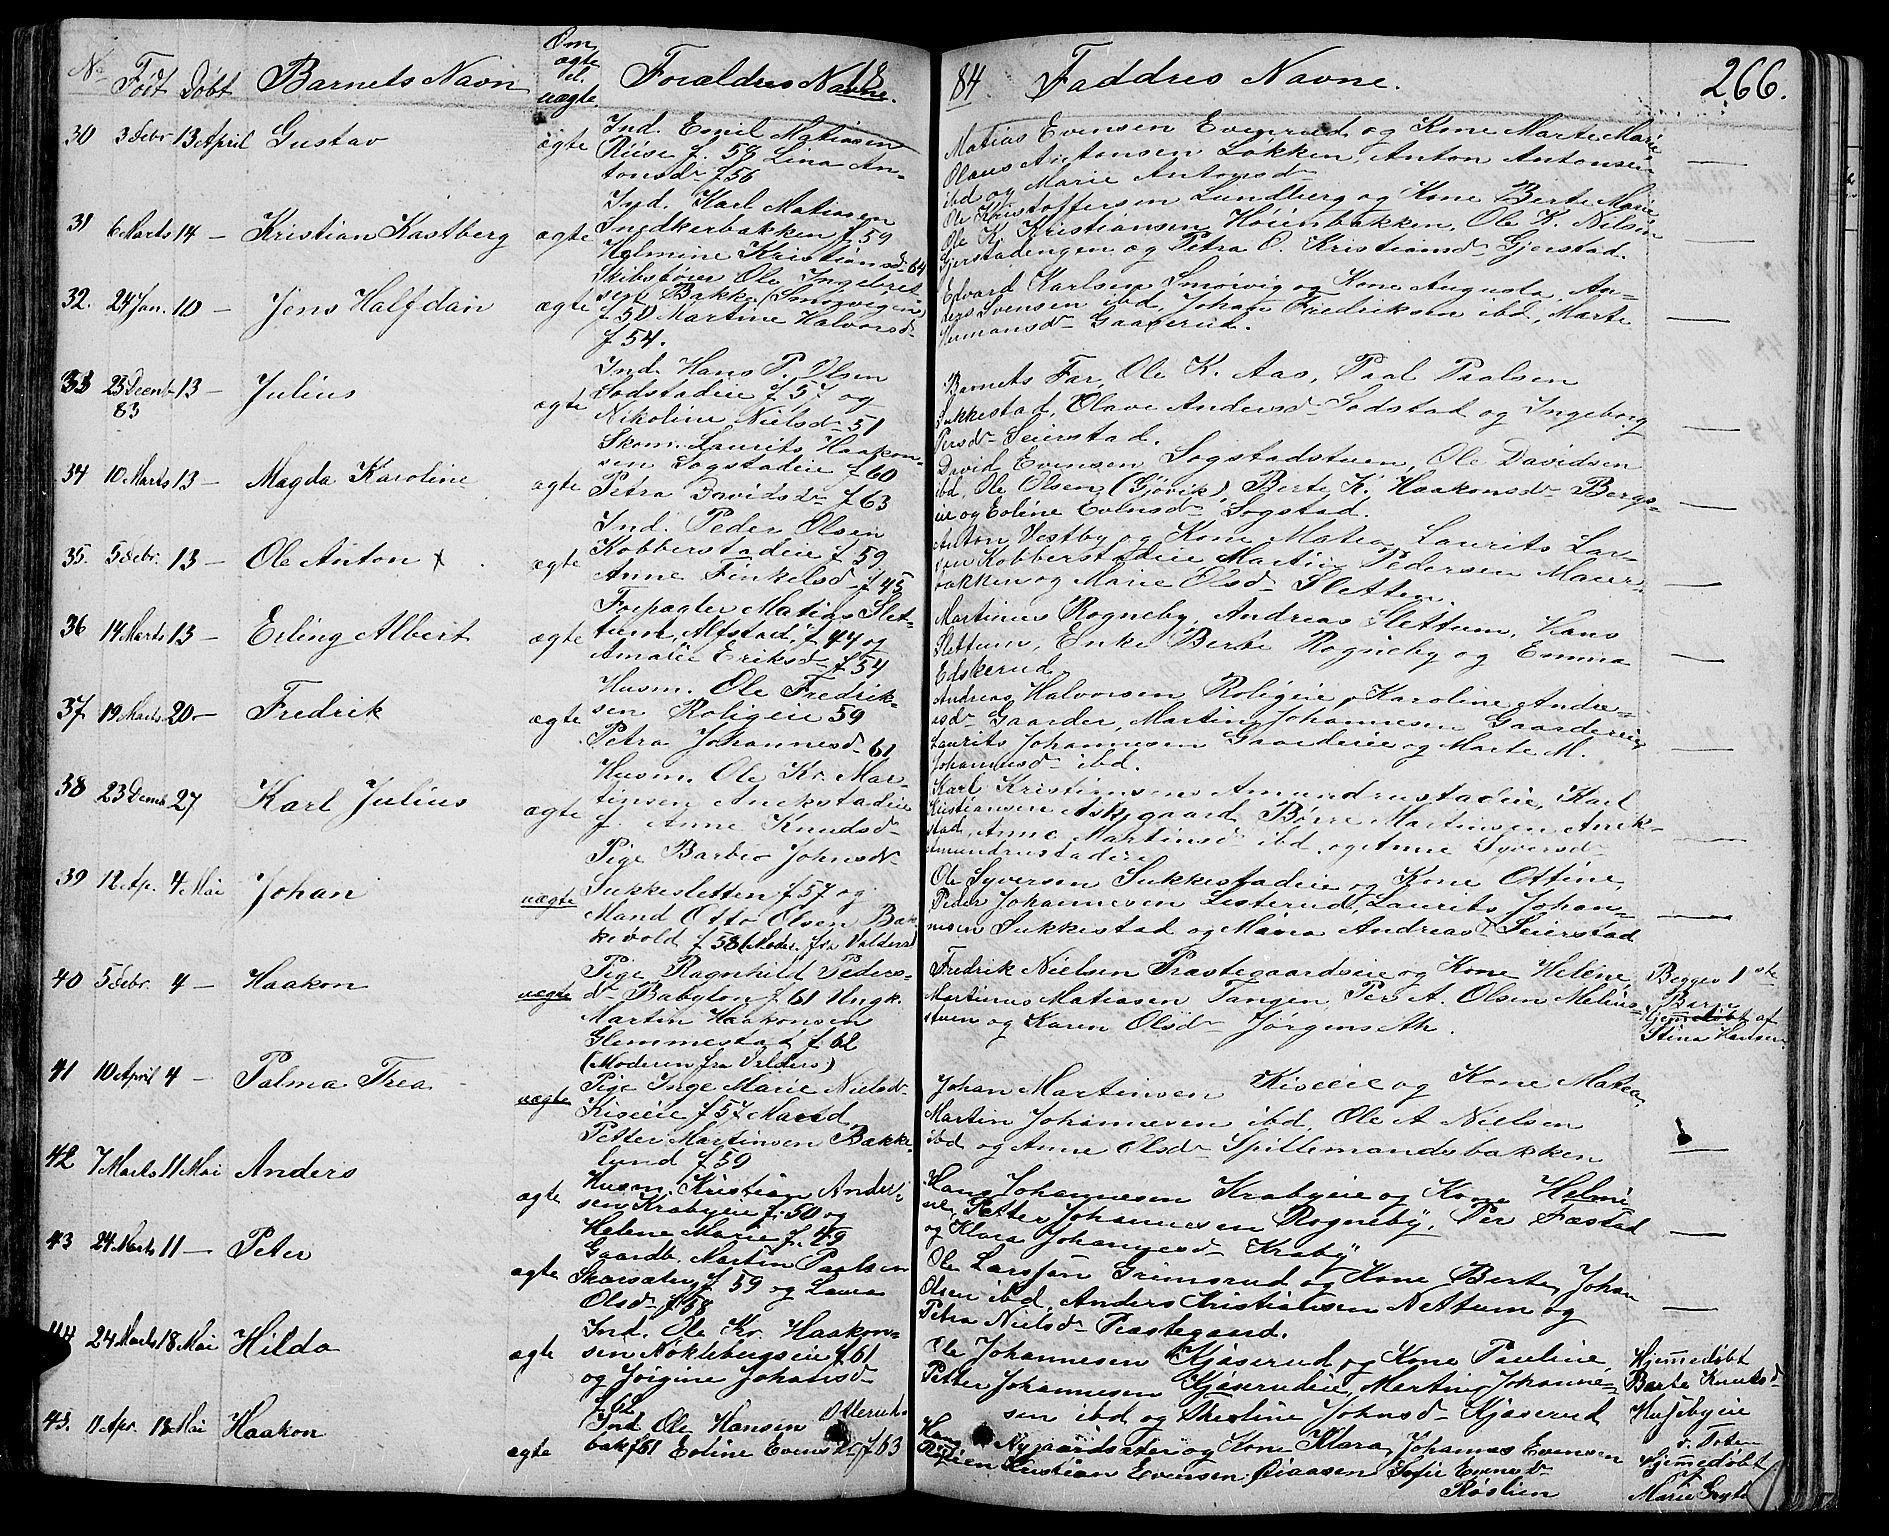 No Født Døbt Barnets Navn Om ægte el. uægte. Forældres Navne. 18
84. Faddres Navne. 266.
30 3 Febr. 13 April Gustav ægte Ind. Emil Matiasen
Riise f. 58 Lina An-
tonsd f 56
Matias Evensen Evenrud og Kone Marte Marie
Olaus Antonsen Løkken, Anton Antonsen
ibd og Marie Antonsd
31 6 Marts 14 – Kristian Kastberg ægte Ind. Karl Matiasen
Snedkerbakken f 59
Helmine Kristiansd 64
Ole Kristoffersen Lundberg og Kone Berte Marie,
Ole K. Kristiansen Høienbakken, Ole K. Nilsen
Gjerstadengen og Petra O. Kristiansd Gjerstad.
32. 24 Jan. 10 – Jens Halfdan ægte Skibstører Ole Ingebret-
sen Bakke (Smørvigen)
f 50 Martine Halvorsd
f 54.
Edvard Karlsen Smørvig og Kone Augusta, An-
ders Svensen ibd, Johan Fredriksen ibd, Marte
Hermansd Gaaserud.
33 23 Decmb 83 13 – Julius ægte Ind. Hans P. Olsen
Sodstadeie f 57 og
Nikoline Nielsd 51
Barnets Far, Ole K. Aas, Paal Paalsen
Sukkestad, Olave Andersd Sodstad og Ingeborg
Persd Seierstad.
34 10 Marts 13 – Magda Karoline ægte Skom. Laurits Haakon-
sen Sogstadeie f 60
Petra Davidsd f 63
David Evensen Sogstadstuen, Ole Davidsen
ibd, Ole Olsen (Gjøvik), Berte K. Haakonsd Bergs-
eie og Eoline Evensd Sogstad.
35. 5 Febr. 13 – Ole Anton ægte Ind. Peder Olsen
Kobberstadeie f 59
Anne Finkelsd f 45
Anton Vestby og Kone Matea, Laurits Lar-
sen Kobberstadeie Martin Pedersen Maur-
bakken og Marie Olsd Sletten.
36 14 Marts 13 – Erling Albert ægte Forpagter Matias Slet-
tum, Alfstad, f 44 og
Amalie Eriksd f 54
Martinus Rogneby, Andreas Slettum, Hans
Slettum, Enke Berte Rogneby og Emma
Edskerud
37 19 Marts 20 – Fredrik ægte Husm. Ole Fredrik-
sen Roligeie 59
Petra Johannesd 61
Andreas Halvorsen Roligeie, Karoline Andre-
asd Gaarder, Martin Johannesen Gaardereie
Laurits Johannesen Gaardereie og Marte M.
Johannesd ibd.
38 23 Decmb 27 Karl Julius ægte Husm. Ole Kr. Mar-
tinsen Anekstadeie
f. Anne Knudsd
Karl Kristiansen Amundrustadeie, Karl
Kristiansen Askjgaard Børre Martinsen Anek-
stad, Anne Martinsd ibd. og Anne Syversd
Amundrustadeie
39 12 Ap. 4 Mai Johan uægte Pige Barbro Johnsd
Sukkesletten f 57 og
Mand Otto Olsen Bak-
kevold f 58 (Moder. fra Valders)
Ole Syversen Sukkestadeie og Kone Ottine,
Peder Johannesen Listerud, Laurits Johan-
nesen Sukkestad og Maria Andreasd Seierstad
40 5 Febr. 4 – Haakon uægte Pige Ragnhild Peders-
d Babylon f 61 Ungk.
Martin Haakonsen
Glemmestad f 62
(Moderen fra Valders)
Fredrik Nielsen Præstegaardseie og Kone Helene,
Martinus Matiasen Tangen, Per A. Olsen Melbye-
stuen og Karen Olsd Jørgenseth.
Begges 1ste
Barn
Hjemedøbt af
Stina Hansen
41 10 April 4 – Palma Trea uægte Pige Inge Marie Nielsd
Kiseeie f 57 Mand
Petter Martinsen Bække-
lund f 59
Johan Martinsen Kiseeie og Kone Matea,
Martin Johannesen ibd, Ole A Nielsen
ibd og Anne Olsd Spillemandsbakken
42 7 Marts 11 Mai Anders ægte Husm. Kristian Ander-
sen Krabyeie f. 50 og
Helene Marie f. 49
Hans Johannesen Krabyeie og Kone Helmi-
ne, Petter Johannesen Rogneby, Per Fæstad
og Klara Johannesd Kraby
43 24 Marts 11 – Peter ægte Gaardb. Martin Paulsen
Skarsæter f 59 og Laura
Olsd f 58
Ole Larssen Grimsrud og Kone Berte, Johan
Olsen ibd, Anders Kristiansen Nettum og
Petra Nielsd Præstegaard.
44 24 Marts 18 Mai Hilda ægte Ind. Ole Kr. Haakon-
sen Nøklebergseie f 61
og Jørgine Johansd
f 62
Ole Johannesen Kjøserud og Kone Pauline,
Petter Johannesen Kjøserudeie, Martin Johanne-
sen ibd og Kristine Johnsd Kjøserud
Hjemmedøbt
Barte Knutsd
Husebyeie
45. 11 Apr. 18 Mai Haakon ægte Ind Ole Hansen Otterud-
bak f 61 Eoline Evensd f 63
Hans Nygaardsæter og Kone Klara, Johannes Evensen
Røslien Kristian Evensen Sofie Evensd
Røslien
v. Toten
Hjemedøbt
af
Marie